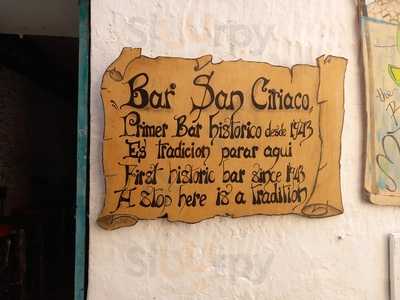 Bar San Ciriaco,
Primer Bar historico desde 1943
Es tradicion parar aqui
First historic bar since 1943
A stop here is a tradition
the